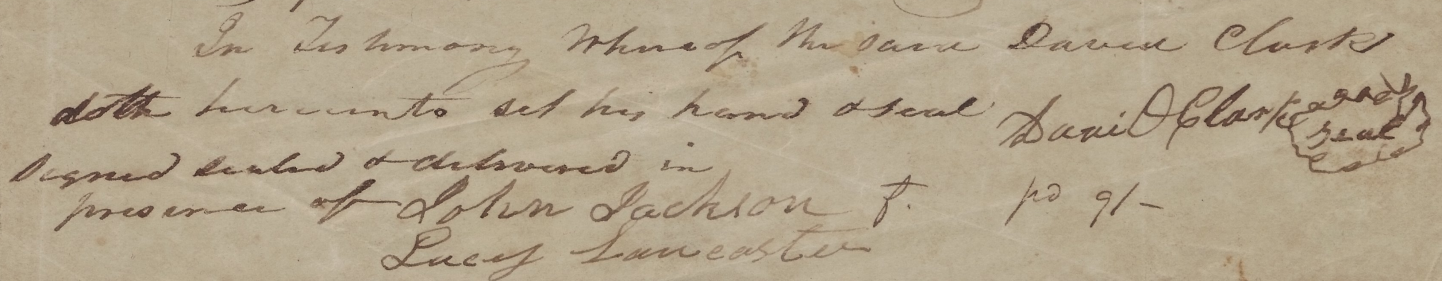 In Testimony Whereof the said David Clark
doth hereunto set his hand & seal David Clark a good seal
Signed sealed & delivered in
presence of John Jackson f. pd 9/-
Lucy Lancaster